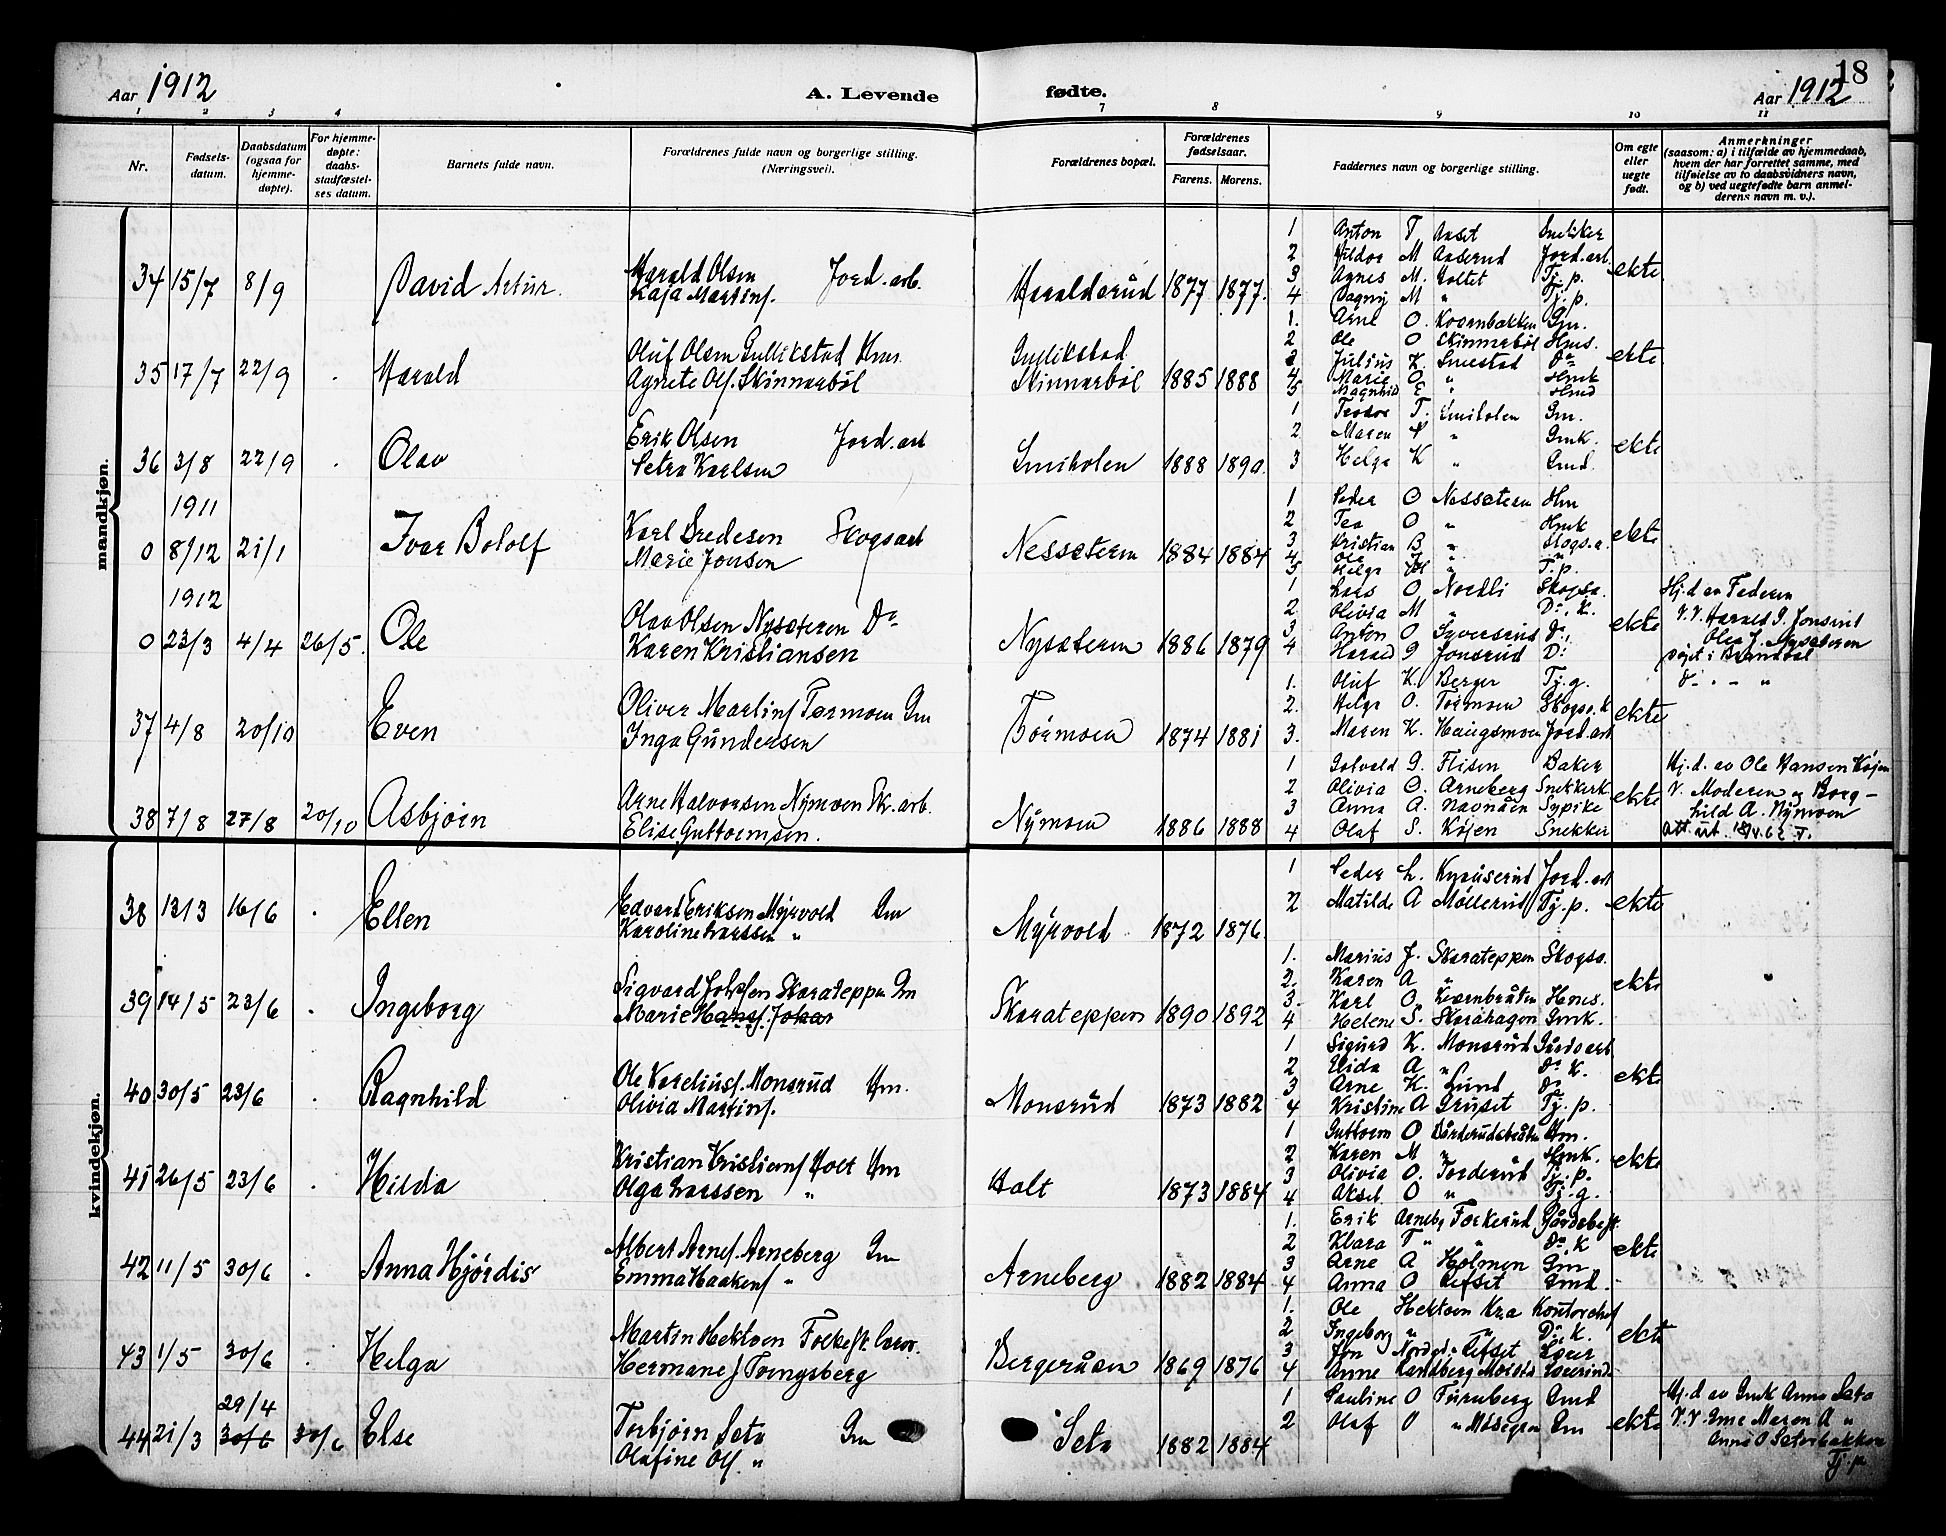 18
Aar 1912 A. Levende fødte. Aar 1912
1 2 3 4 7 8 9 10 11
Nr. Fødsels-datum. Daabsdatum (ogsaa for hjemme-døpte). For hjemme-døpte: daabs-stadfæstel-ses datum. Barnets fulde navn. Forældrenes fulde navn og borgerlige stilling. (Næringsvei). Forældrenes bopæl. Forældrenes fødselsaar. Farens. Morens. Faddernes navn og borgerlige stilling. Om egte eller uegte født. Anmerkninger (saasom: a) i tilfælde av hjemmedaab, hvem der har forrettet samme, med tilføielse av to daabsvidners navn, og b) ved uegtefødte barn anmel-derens navn m. v.).
mandkjøn.
34 15/7 8/9 David Artur. Harald Olsen Jord.arb. Haraldsrud 1877 1877. ekte
Kaja Martins.
1 Anton T Aaset Snekker
2 Hildor M Aaserud Jord.arb.
3 Agnes M. Holtet Tj.p.
4 Dagny M " Tj.p.
35 17/7 22/9 . Harald Oluf Olsen Gullikstad Hm. Gullikstad 1885 1888 ekte
Agnete Ols. Skinnarbøl Skinnarbøl
1. Arne O. Kvernbakken Gm.
2 Ole O Skinnarbøl Hms.
3 Julius K. Smestad Do
4 Marie O. " Hmk
5 Magnhild E " Hmd
36 3/8 22/9 . Olav Erik Olsen Jord.arb Smiholen 1888 1890. ekte
Petra Karlsen
1 Teodor T. Smiholen Gm.
2 Maren P " Gmk.
3 Helga K " Gmd.
1911
0 8/12 21/1 Ivar Bololf Karl Bredesen Skogsarb Nessæteren 1884 1884 ekte
Marie Jonsen
1 Peder O Nessæteren Hm
2 Tea O " Hmk
3 Kristian B " Skogs.a.
4 Ole
5 Helga " T.p.
1912
0 23/3 4/4 26/5. Ole Olav Olsen Nysæteren Do Nysæteren 1886 1879 ekte
Karen Kristiansen
1 Lars O Nordli Skogsa.
2. Olivia M " Do. K.
3 Anton O Syversrud Do.
4 Harald Jonsrud D:
Hj.d av Faderen
V.V. Harald Jonsrud
Olea J. Nysæteren
37 4/8 20/10 Even Oliver Martins. Tørmoen Gm Tørmoen 1874 1881 ekte
Inga Gundersen
1. Oluf K. Berger Tj.g.
2. Helga O. Tørmoen Skogsa.k
3. Maren K. Haugsmoen Jord.arb
38 7/8 27/8 20/10 Asbjørn Arne Halvorsen Nymoen Sk.arb. Nymoen 1886 1888 ekte
Elise Guttormsen.
1 Solvald G. Flisen Baker
2 Olivia O. Arneberg Snekkerk
3 Anna A. Navnåen Sypike
4 Olaf S. Køjen Snekker
Hj.d. av Ole Hansen Køjen
V. Moderen og Borg-
hild A. Nymoen
kvindekjøn.
38 13/3 16/6 . Ellen Edvard Eriksen Myrvold Gm Myrvold 1872 1876. ekte
Karoline Larssen "
1 Peder L. Jord.arb
2 Matilde A Møllerud Tj.p.
39 14/5 23/6 . Ingeborg Sigvard Johsen Skarateppen Gm Skarateppen 1890 1892 ekte
Marie Hans. Johar
1. Marius J. Skarateppen Skogsa.
2. Karen A "
3. Karl O. Kvernbråten Hms.
4 Helene S. Skarahagen Gmk.
40 30/5 23/6 . Ragnhild Ole Kareliuss. Monsrud Hm. Monsrud 1873 1882 ekte
Olivia Martins.
1 Sigurd K. Monsrud Gårdsarb
2 Elida A " Do K.
3 Arne K. Lund do
4 Kristine A Gruset Tj.p.
41 26/5 23/6 . Hilda Kristian Kristians Holt Hm Holt 1873 1884 ekte
Olga Larssen "
1 Guttorm O Hm.
2 Karen M " Hmk.
3 Olivia O. Torderud Tj.p.
4 Aksel O " Tj.g.
42 11/5 30/6 . Anna Hjørdis Albert Arnes. Arneberg Gm Arneberg 1882 1884 ekte
Emma Haakens "
1. Erik Arneby Torkerud Gårdsbest.
2 Klara T " " Do. K
3 Arne A Holmen Gm
4 Anna O Refset Gmd.
43 1/5 30/6 . Helga Martin Hektoen Bergeråsen 1869 1876 ekte
Hermane J Tvengsberg
1. Ole Hektoen Kra Kontorchef
2 Ingeborg " " Do. K.
3 Jon Refset Lærer
4 Anne Sandberg Lærerinde
29/4
44 21/3 30/6 30/6 Else Torbjørn Seta Gm Seta 1882 1884 ekte
Olafine Ols. "
1 Pauline O Furuberg Gmd
2 Olaf O " Gm
Hj.d av Gmk Anna Seta
V.V. Gme Maren A "
Anne O Sæterbakken
Tj.p.